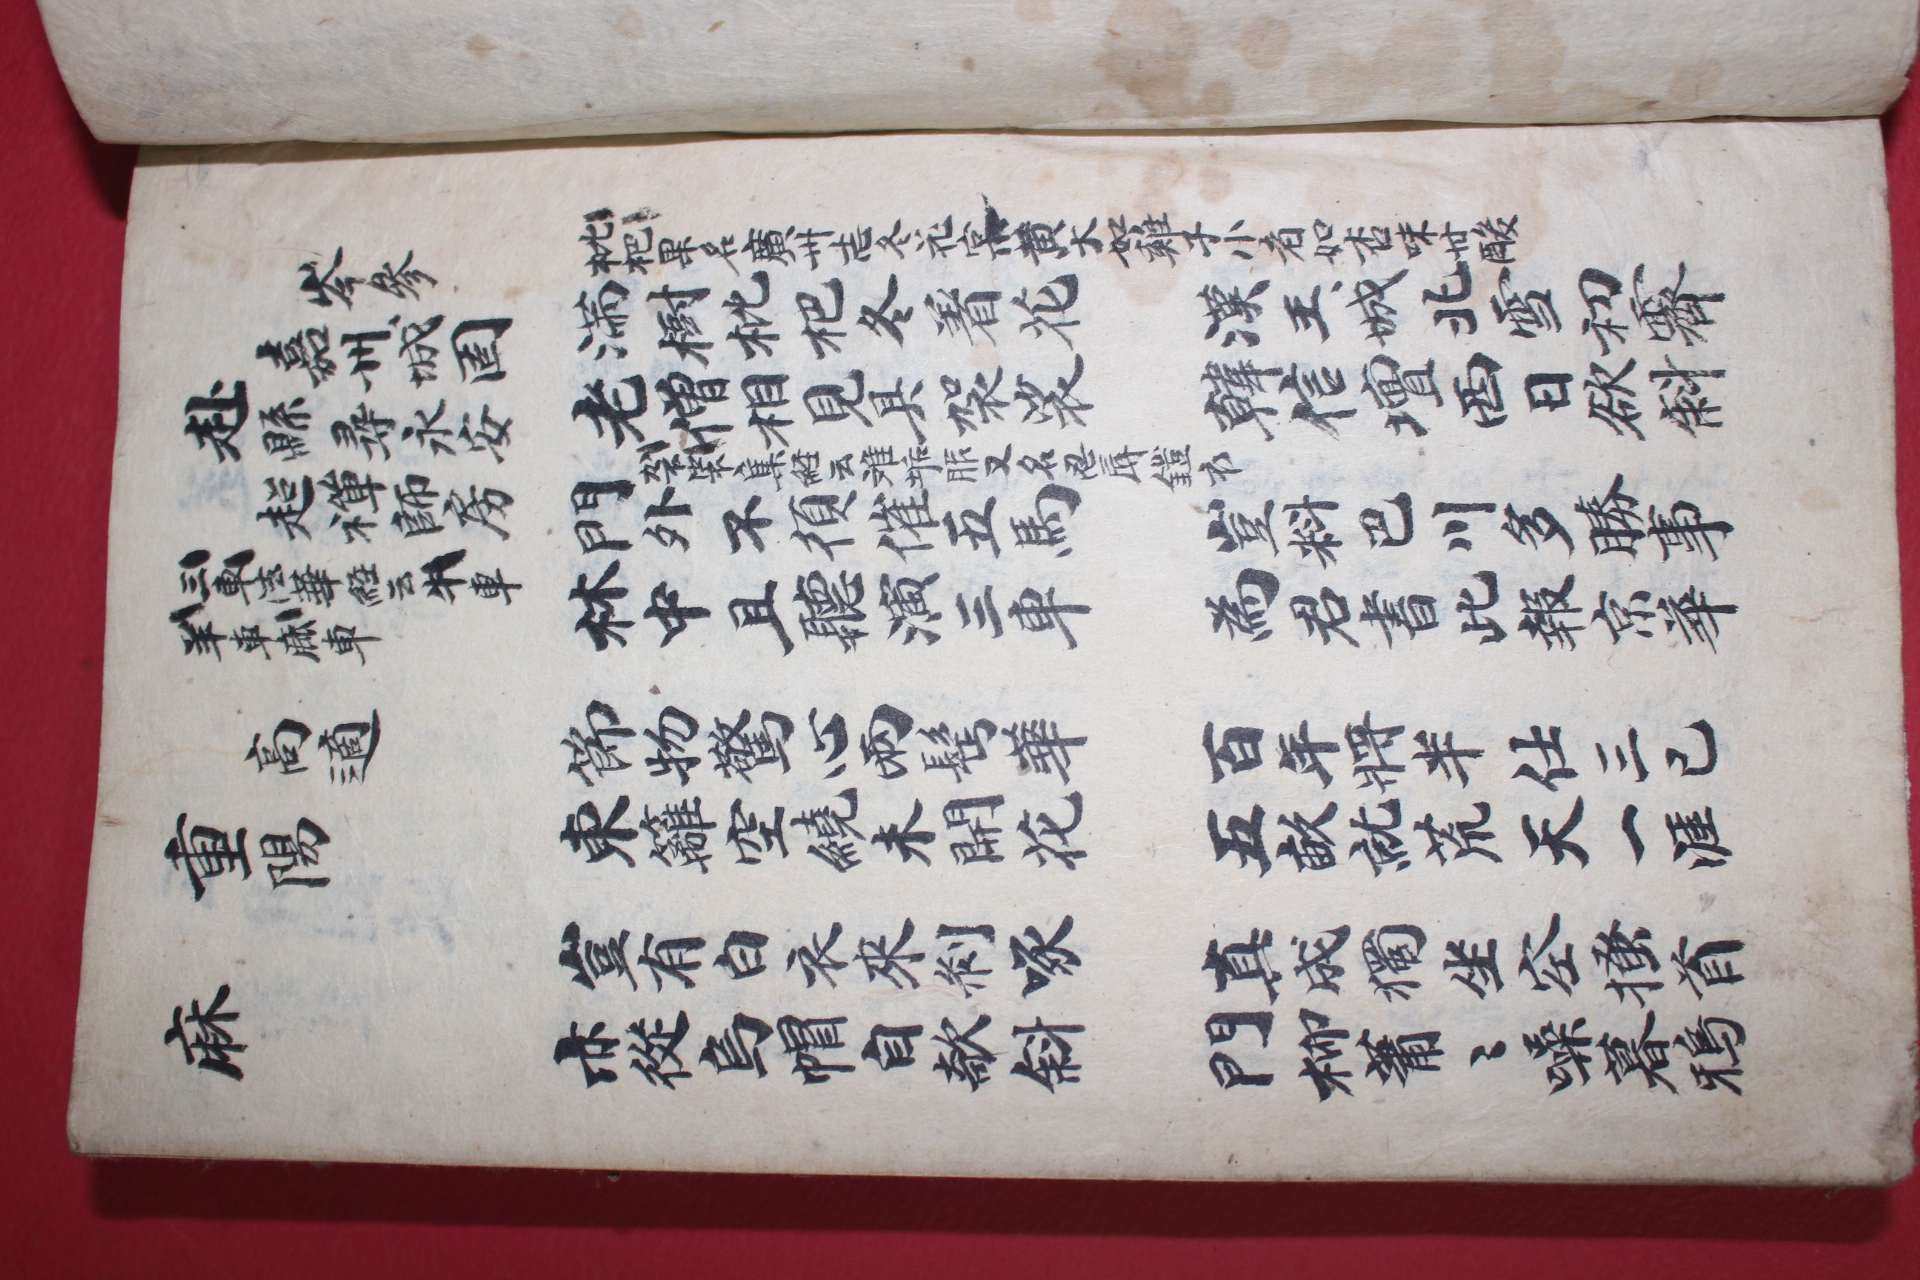 岑參
嘉州城固
赴縣尋永安
超禪師房
三車法華經云牛車
羊車鹿車
枇杷果名廣州志冬花實黃大如雞子小者如杏味甘酸
滿樹枇杷冬著花
漢王城北雪初霽
老僧相見具袈裟
韓信壇西日欲斜
袈裟集經云離垢服又名忍辱鎧衣
門外不須催五馬
豈料巴川多勝事
林中且聽演三車
為君書此報京華
高適
重陽
節物驚心兩鬢華
百年將半仕三已
東籬空繞未開花
五畝就荒天一涯
麻
豈有白衣來剝啄
真成獨坐空搔首
亦從烏帽自欹斜
門柳蕭〻噪暮鴉